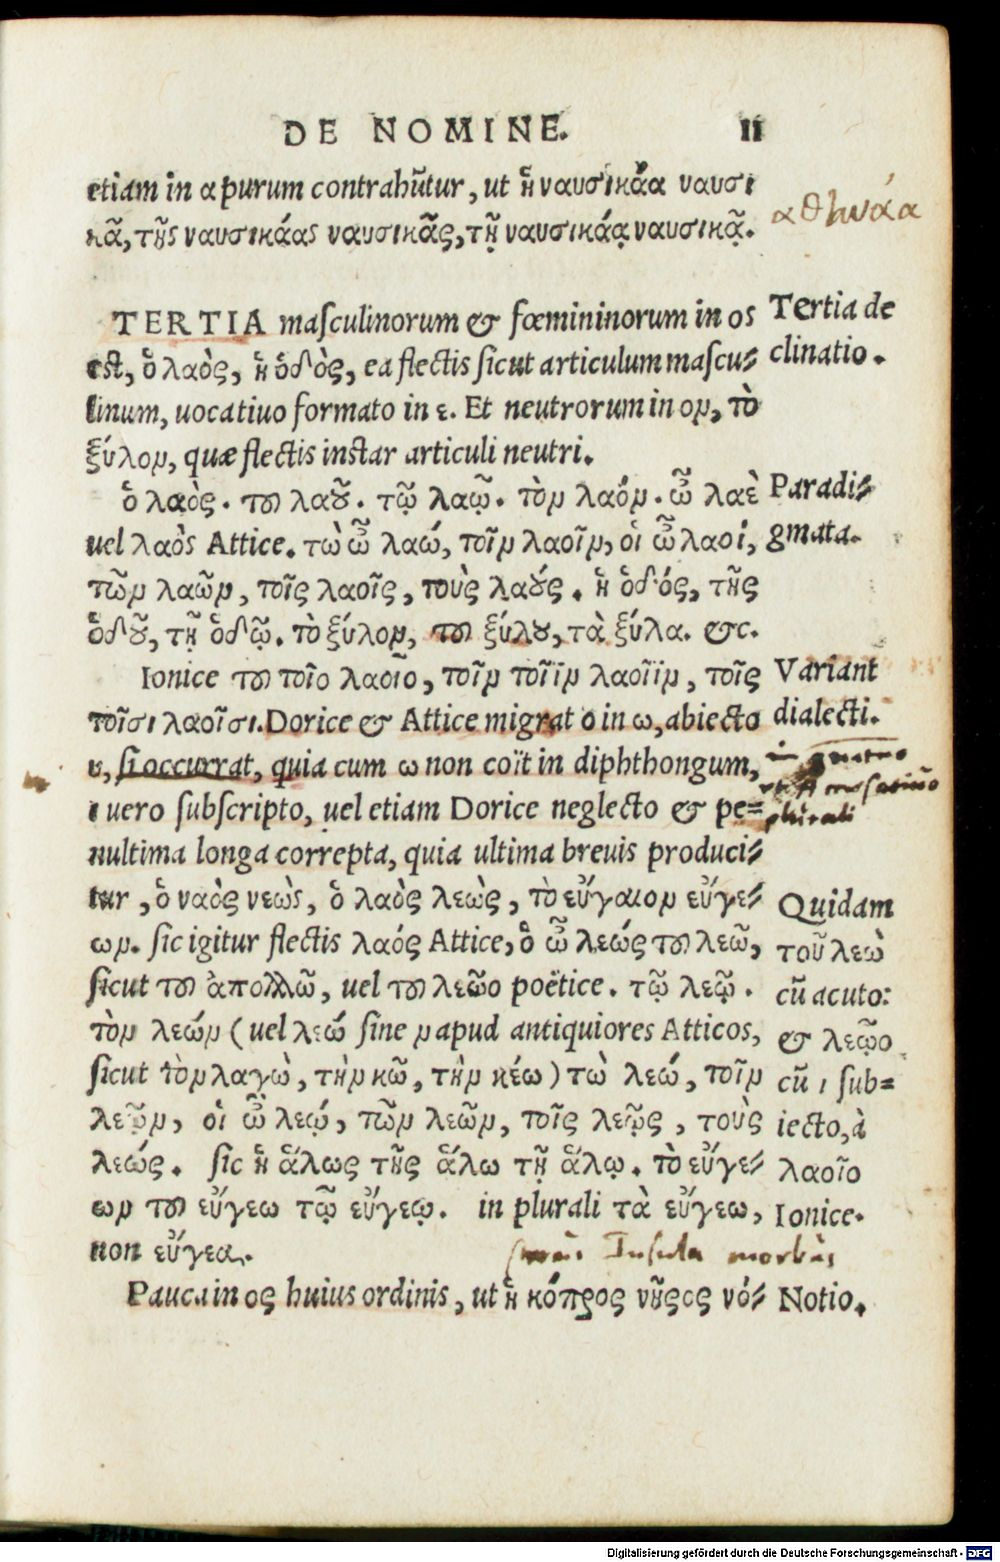 DE NOMINE. 11
etiam in α purum contrahũtur, ut ἡ ναυσικάα ναυσι
κᾶ, τῆς ναυσικάας ναυσικᾶς, τῇ ναυσικάᾳ ναυσικᾷ.
αθηνάα
TERTIA masculinorum & fœmininorum in os
est, ὁ λαὸς, ἡ ὁδὸς, ea flectis sicut articulum mascu-
linum, uocatiuo formato in ε. Et neutrorum in ον, τὸ
ξύλον, quæ flectis instar articuli neutri.
Tertia de
clinatio.
ὁ λαὸς. τοῦ λαοῦ. τῷ λαῷ. τὸν λαόν. ὦ λαὲ
uel λαὸς Attice. τὼ ὦ λαώ, τοῖν λαοῖν, οἱ ὦ λαοί,
τῶν λαῶν, τοῖς λαοῖς, τοὺς λαούς. ἡ ὁδός, τῆς
ὁδοῦ, τῇ ὁδῷ. τὸ ξύλον, τοῦ ξύλου, τὰ ξύλα. &c.
Paradi-
gmata.
Ionice τοῦ τοῖο λαοῖο, τοῖν τοῖϊν λαοῖϊν, τοῖς
τοῖσι λαοῖσι. Dorice & Attice migrat ο in ω, abiecto
υ, si occurrat, quia cum ω non coït in diphthongum,
ι uero subscripto, uel etiam Dorice neglecto & pe-
nultima longa correpta, quia ultima breuis produci-
tur, ὁ ναὸς νεὼς, ὁ λαὸς λεὼς, τὸ εὔγαιον εὔγε-
ων. sic igitur flectis λαός Attice, ὁ ὦ λεώς τοῦ λεῶ,
sicut τοῦ ἀπολλῶ, uel τοῦ λεῶο poëtice. τῷ λεῷ.
τὸν λεών (uel λεώ sine ν apud antiquiores Atticos,
sicut τὸν λαγὼ, τὴν κῶ, τὴν κέω) τὼ λεώ, τοῖν
λεῷν, οἱ ὦ λεῴ, τῶν λεῶν, τοῖς λεῷς, τοὺς
λεώς. sic ἡ ἅλως τῆς ἅλω τῇ ἅλῳ. τὸ εὔγε-
ων τοῦ εὔγεω τῷ εὔγεῳ. in plurali τὰ εὔγεω,
non εὔγεα.
Variant
dialecti.
plurali
Quidam
τοῦ λεὼ
cũ acuto:
& λεῷο
cũ ι sub-
iecto, à
λαοῖο
Ionice.
Insula morbus
Pauca in ος huius ordinis, ut ἡ κόπρος νῆσος νό-
Notio.
Digitalisierung gefördert durch die Deutsche Forschungsgemeinschaft - DFG